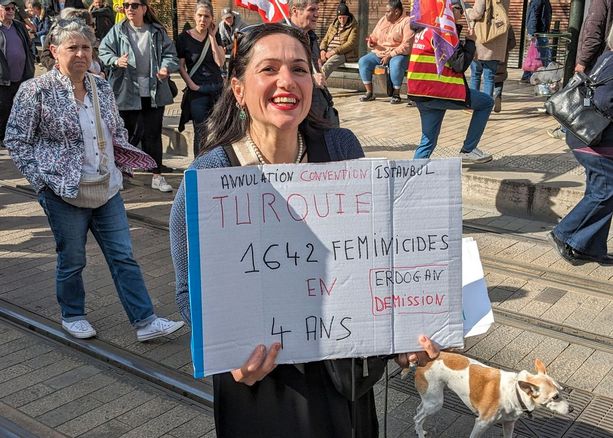 ANNULATION CONVENTION ISTANBUL
TURQUIE
1642 FEMINICIDES
EN
ERDOGAN
DEMISSION
4 ANS